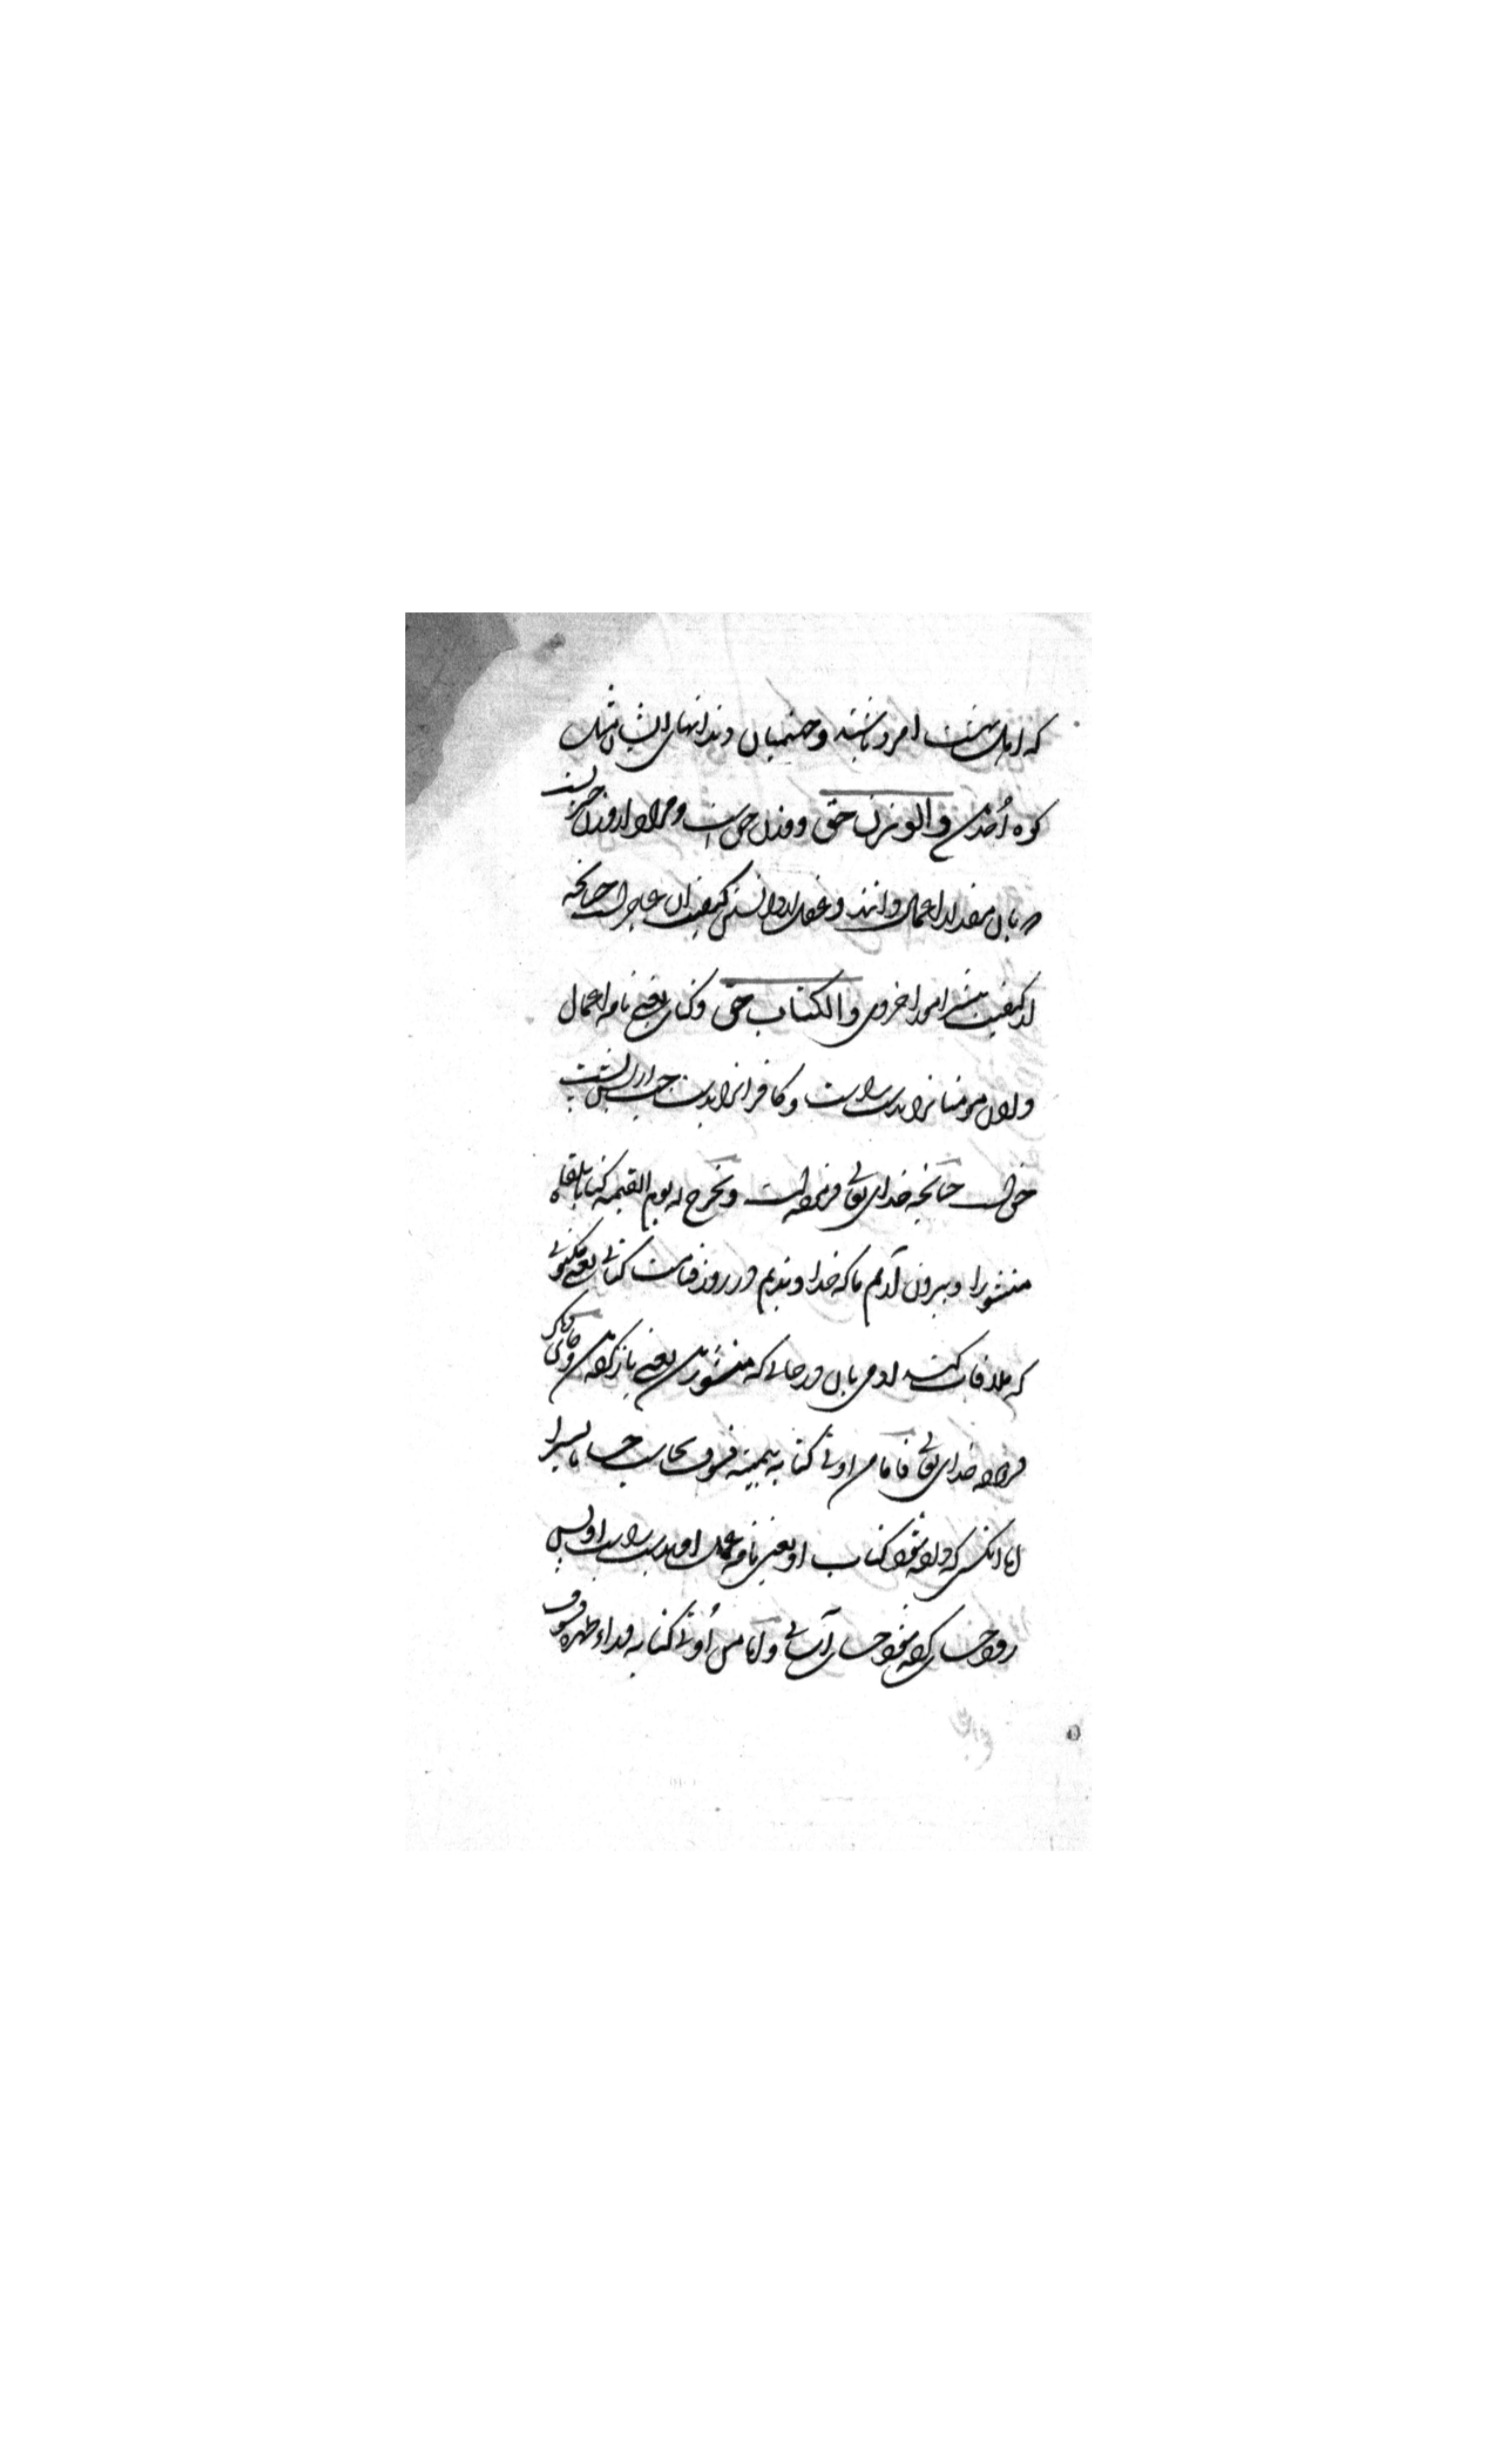 که اهل بهشت امرد باشند و جهنمیان دندانهای ایشان مثل
کوه احد است والوزن حق و وزن حق است و مراد از وزن چیزیست
که بآن مقدار اعمال دانند و عقل از دانستن کیفیت آن عاجز است چنانچه
از کیفیت بیشتر امور اخروی والکتاب حق و کتاب یعنی نامه اعمال
دادن مومنانرا بدست راست و کافرانرا بدست چپ از پس پشت
حق است چنانچه خدای تعالی فرموده است ونخرج له یوم القیمه کتابا یلقاه
منشورا و بیرون آریم ما که خداوندیم در روز قیامت کتابی یعنی مکتوبی
که ملاقات کند آدمی بآن در حالی که منشور است یعنی باز کرده است و جای دیگر
فرموده خدای تعالی فاما من اوتی کتابه بیمینه فسوف یحاسب حسابا یسیرا
اما آنکس که داده شود کتاب او یعنی نامه عمل او بدست راست او پس
زود حساب کرده شود حساب آسانی واما من اوتی کتابه وراء ظهره فسوف